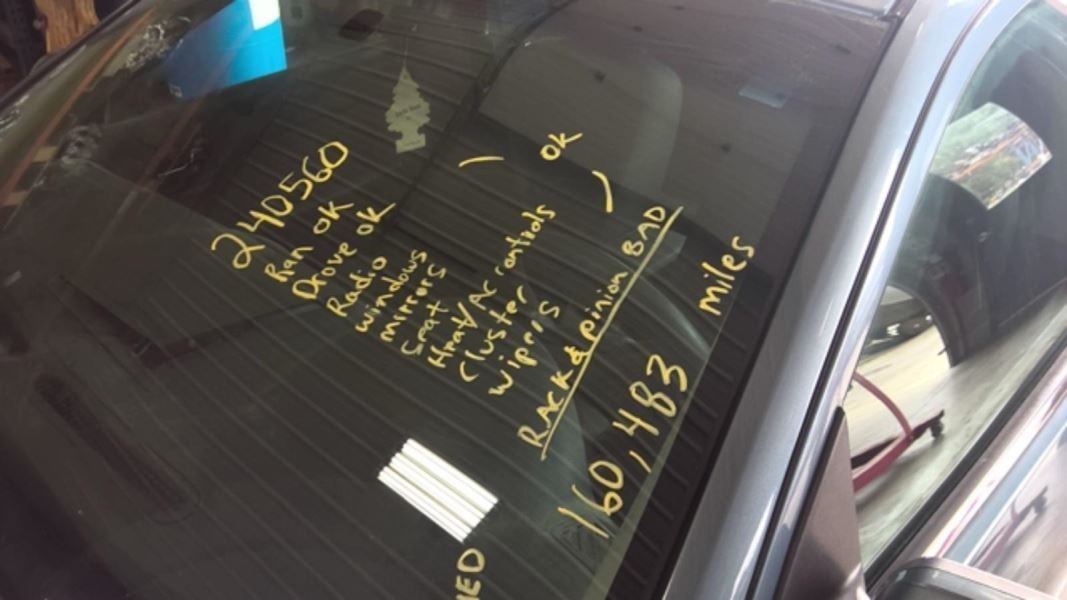 240560
Ran OK
Drove OK
Radio
windows
mirrors
Seat
Heat/Ac controls
Cluster
wipers
OK
RACK & pinion BAD
160,483 miles